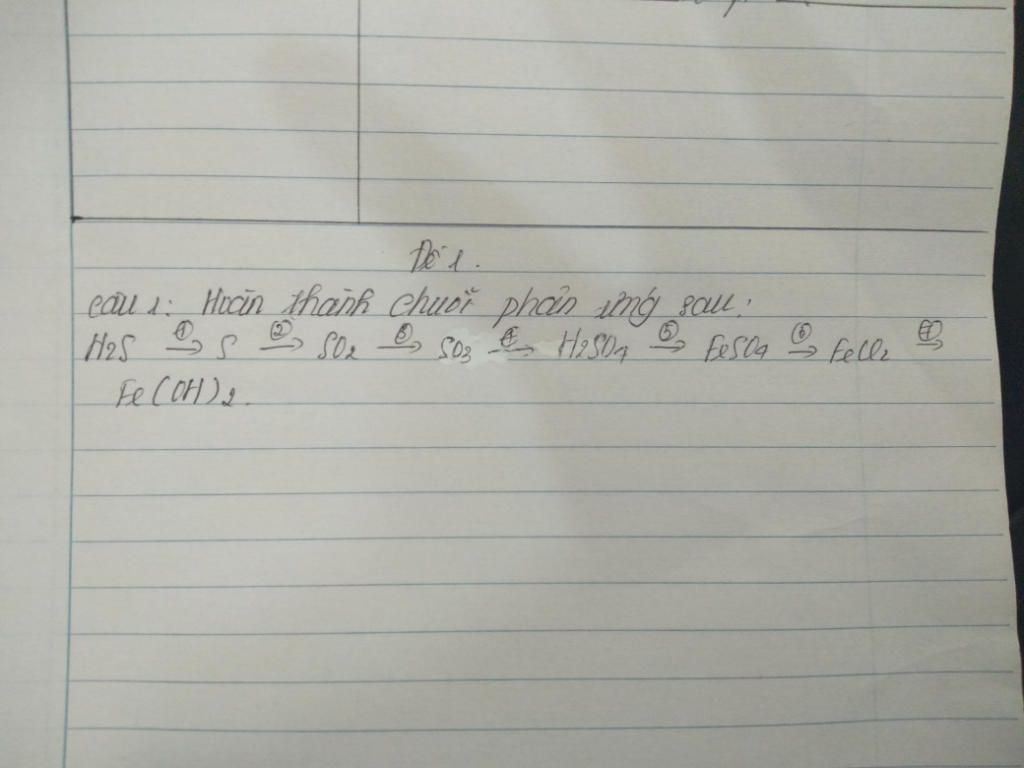 Đề 1.
Câu 1: Hoàn thành chuỗi phản ứng sau:
H2S ①→ S ②→ SO2 ③→ SO3 ④→ H2SO4 ⑤→ FeSO4 ⑥→ FeCl2 ⑦→
Fe(OH)2.